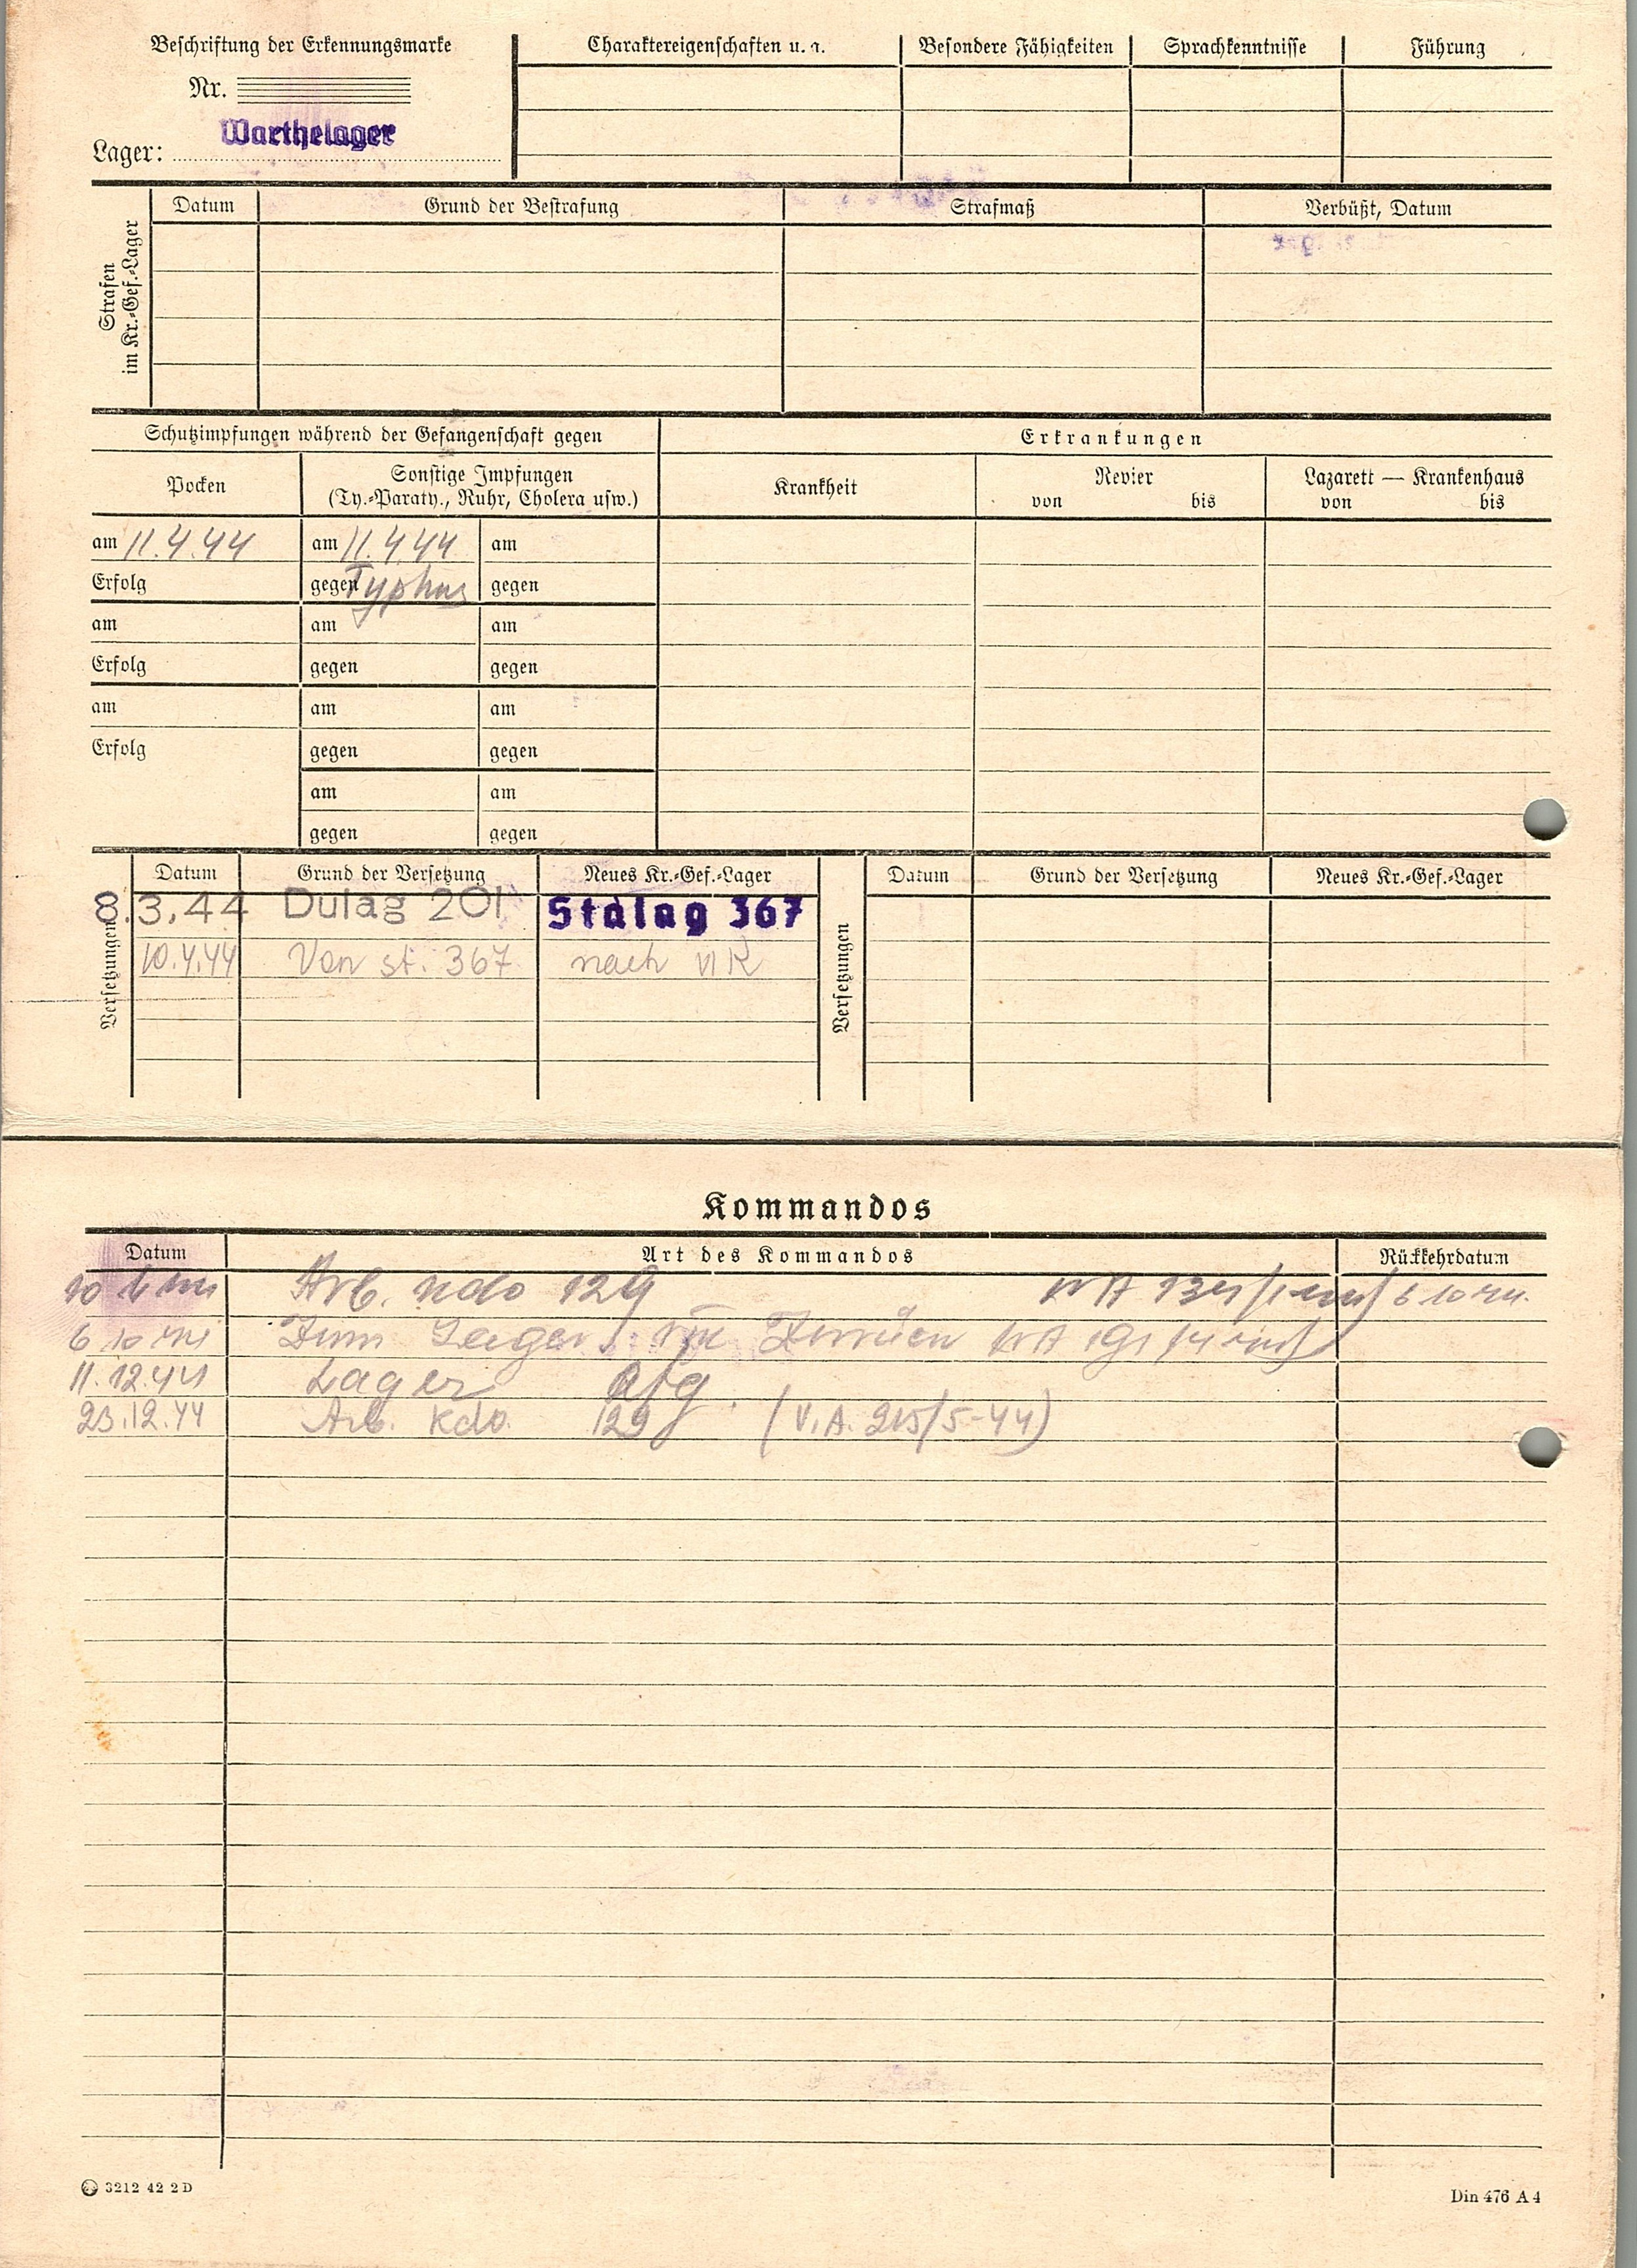 Beschriftung der Erkennungsmarke
Nr.
Warthelager
Lager:
Charaktereigenschaften u. a.
Besondere Fähigkeiten
Sprachkenntnisse
Führung
Strafen
im Kr.-Gef.-Lager
Datum
Grund der Bestrafung
Strafmaß
Verbüßt, Datum
Schutzimpfungen während der Gefangenschaft gegen
Erkrankungen
Pocken
Sonstige Impfungen
(Ty.-Paraty., Ruhr, Cholera usw.)
Krankheit
Revier
von bis
Lazarett — Krankenhaus
von bis
am 11.4.44 am 11.4.44 am
Erfolg gegen Typhus gegen
am am am
Erfolg gegen gegen
am am am
Erfolg gegen gegen
am am
gegen gegen
Versetzungen
Datum Grund der Versetzung Neues Kr.-Gef.-Lager
8.3.44 Dulag 201 Stalag 367
10.4.44 Von st. 367 nach
Versetzungen
Datum Grund der Versetzung Neues Kr.-Gef.-Lager
Kommandos
Datum Art des Kommandos Rückkehrdatum
Arb. Kdo 129 6 10 44.
6 10 44 Zum Lager
11.12.44 Lager
23.12.44 Arb. Kdo. 129 (V.A. 215/5-44)
3212 42 2 D
Din 476 A 4